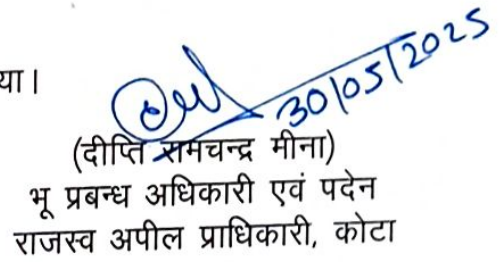 या।
30/05/2025
(दीप्ति रामचन्द्र मीना)
भू प्रबन्ध अधिकारी एवं पदेन
राजस्व अपील प्राधिकारी, कोटा